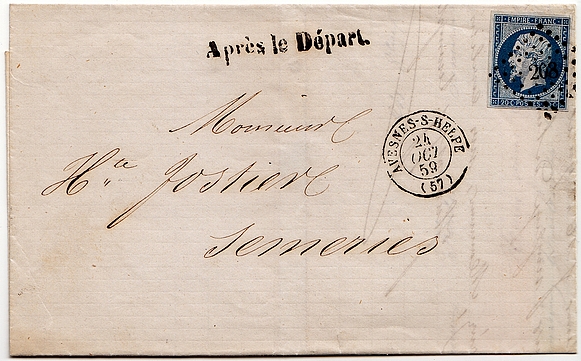 Après le Départ.
EMPIRE FRANC
20 C. POSTES 20 C.
AVESNES-S-HELPE
24
OCT
59
(57)
Monsieur
Hte
Semeries